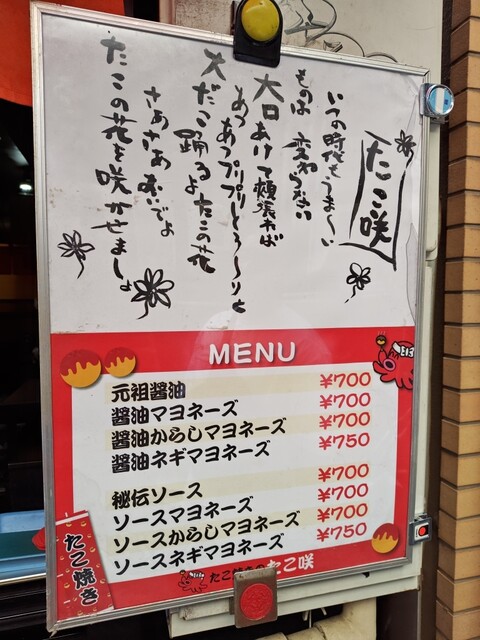 たこ咲
いつの時代もうま〜い
ものは変わらない
大口あけて頬張れば
あつあつプリプリとろ〜りと
大だこ踊るよたこの花
さあさあおいでよ
たこの花を咲かせましょ
MENU
元祖醤油 ¥700
醤油マヨネーズ ¥700
醤油からしマヨネーズ ¥700
醤油ネギマヨネーズ ¥750
秘伝ソース ¥700
ソースマヨネーズ ¥700
ソースからしマヨネーズ ¥700
ソースネギマヨネーズ ¥750
たこ焼き
たこ焼きのたこ咲